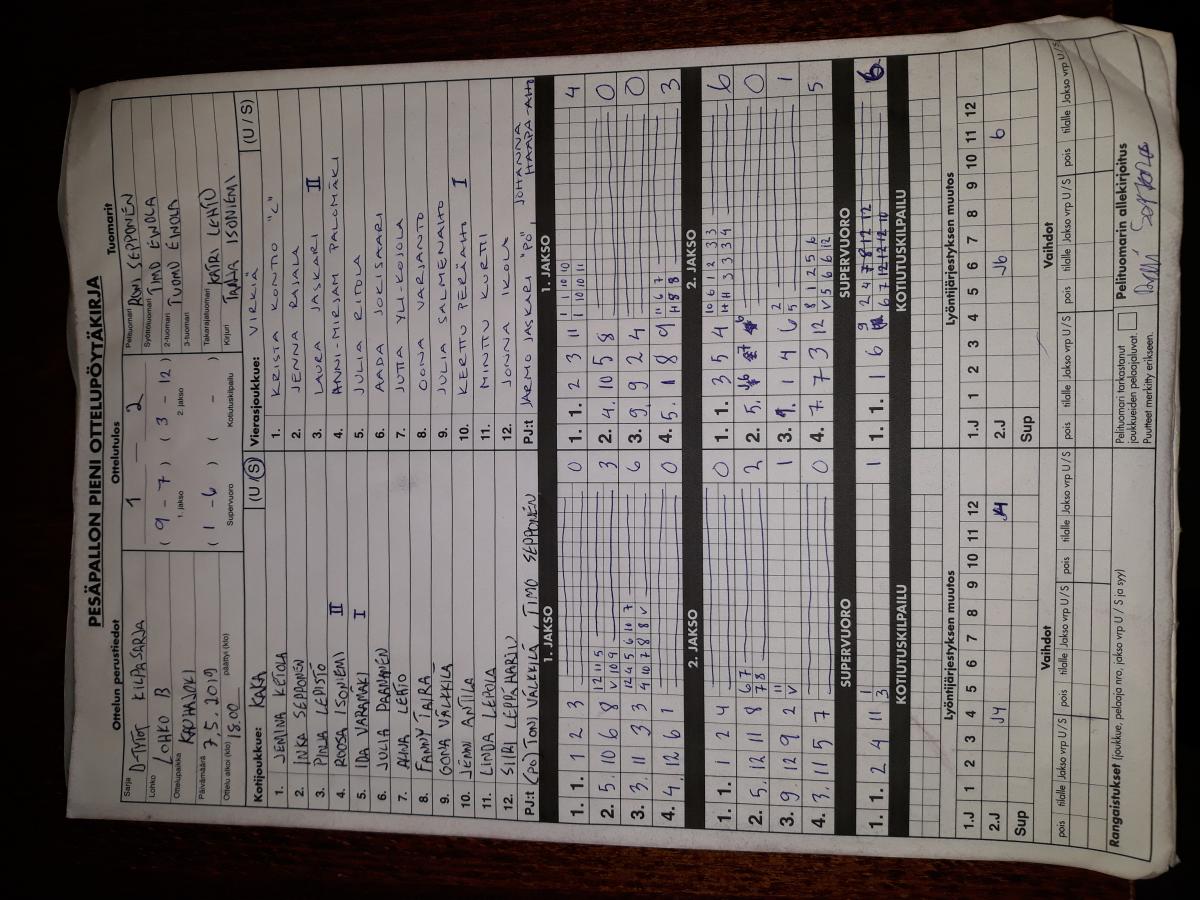 PESÄPALLON PIENI OTTELUPÖYTÄKIRJA
Ottelun perustiedot
Ottelutulos
Tuomarit
Sarja D-TYTÖT KILPASARJA
Lohko LOHKO B
Ottelupaikka KAUHAJOKI
Päivämäärä 7.5.2019
Ottelu alkoi (klo) 18.00 päättyi (klo)
1 — 2
( 9 - 7 ) ( 3 - 12 )
1. jakso 2. jakso
( 1 - 6 ) ( - )
Supervuoro Kotiutuskilpailu
Pelituomari SEPPONEN
Syöttötuomari TIMO EINOLA
2-tuomari TUOMO EINOLA
3-tuomari
Takarajatuomari KATRI LEHTO
Kirjuri TARJA ISONIEMI
Kotijoukkue: KAKA (U / S)
1. JEMINA KETOLA
2. INKA SEPPONEN
3. PINJA LEPISTÖ
4. ROOSA ISONIEMI II
5. IIDA VARAMÄKI I
6. JULIA PARJANEN
7. LEHTO
8. FANNY TAIRA
9. OONA VÄLKKILÄ
10. JENNI ANTILA
11. LINDA LEPOLA
12. SIIRI LEPPÄHARJU
PJ:t (PO) TONI VÄLKKILÄ, TIMO SEPPONEN
Vierasjoukkue: VIRKIÄ (U / S)
1. KRISTA KONTIO "C"
2. JENNA RAJALA
3. LAURA JASKARI II
4. ANNI-MIRJAM PALOMÄKI
5. JULIA RITOLA
6. AADA JOKISAARI
7. JUTTA YLI-KOJOLA
8. OONA VARJANTO
9. JULIA SALMENAHO
10. KERTTU PERÄAHO I
11. MINTTU KURTTI
12. JONNA IKOLA
PJ:t JARMO JASKARI "PO", JOHANNA HAAPA-AHO
1. JAKSO
1. 1. 1 2 3 0
2. 5. 10 6 8 3
3. 3. 11 3 3 6
4. 4. 12 6 1 0
2. JAKSO
1. 1. 1 2 4 0
2. 5. 12 11 8 6 7 7 8 2
3. 9. 12 9 2 11 V 1
4. 3. 11 5 7 0
SUPERVUORO
1. 1. 2 4 11 1 3 1
KOTIUTUSKILPAILU
1. JAKSO
1. 1. 2 3 11 1 1 10 10 1 10 10 11 4
2. 4. 10 5 8 0
3. 9. 9 2 4 0
4. 5. 1 8 9 11 6 7 H 8 8 3
2. JAKSO
1. 1. 3 5 4 10 6 1 2 3 3 H H 3 3 3 4 6
2. 5. 0
3. 9. 1 4 6 2 5 1
4. 7. 7 3 12 8 1 2 5 6 V 5 6 6 12 5
SUPERVUORO
1. 1. 1 6 9 2 4 7 8 12 12 6 7 12 12 12 10 6
KOTIUTUSKILPAILU
Lyöntijärjestyksen muutos
1.J 1 2 3 4 5 6 7 8 9 10 11 12
2.J J4
Sup
Vaihdot
pois tilalle Jakso vrp U / S pois tilalle Jakso vrp U / S pois tilalle Jakso vrp U / S
Lyöntijärjestyksen muutos
1.J 1 2 3 4 5 6 7 8 9 10 11 12
2.J J6 6
Sup
Vaihdot
pois tilalle Jakso vrp U / S pois tilalle Jakso vrp U / S pois tilalle Jakso vrp U / S
Rangaistukset (joukkue, pelaaja nro, jakso vrp U / S ja syy)
Pelituomari tarkastanut
joukkueiden pelaajaluvat.
Puutteet merkitty erikseen.
Pelituomarin allekirjoitus